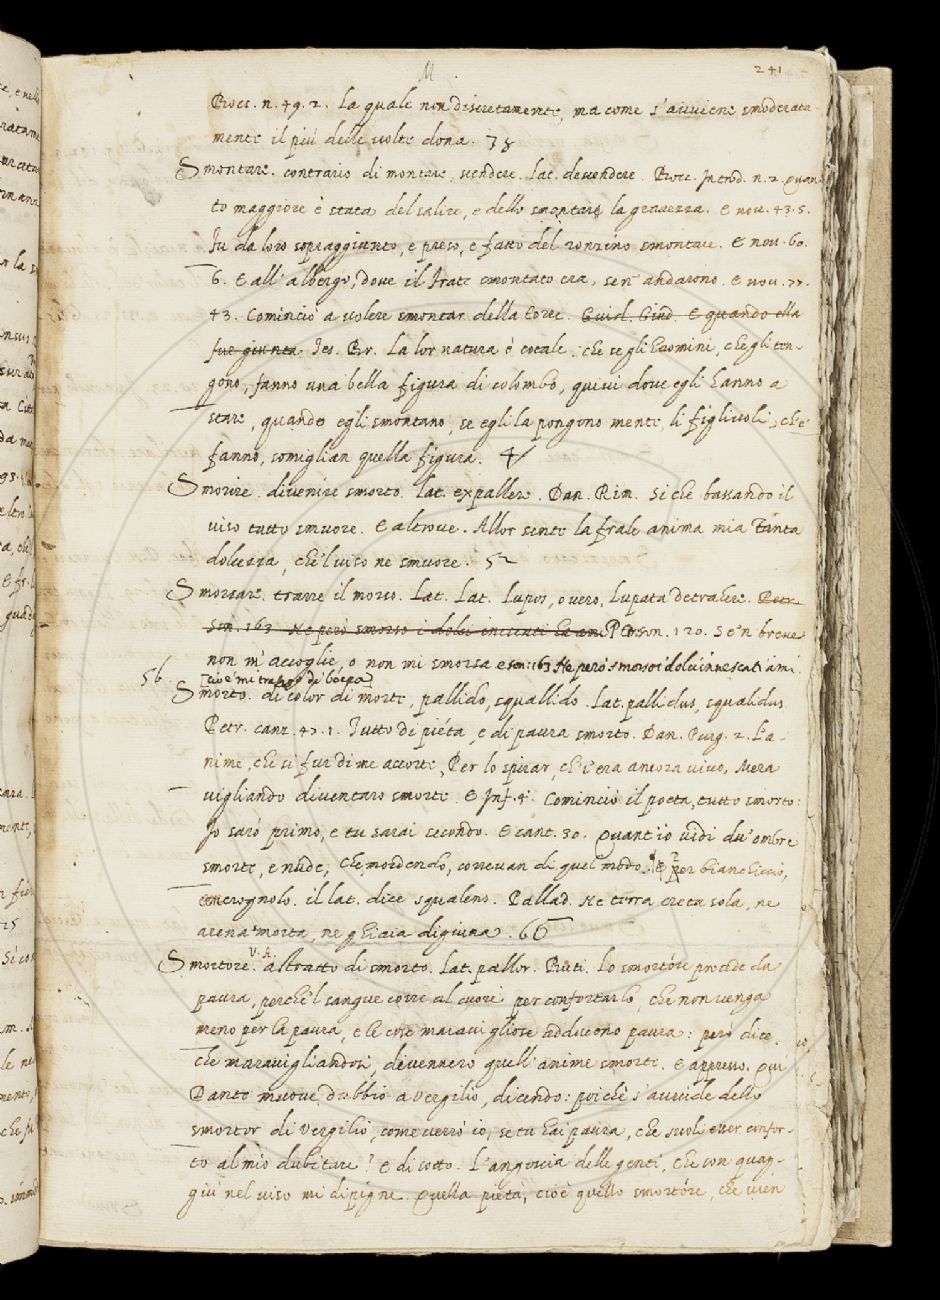 M.
241
Bocc. n. 49. 2. La quale non discretamente, ma come s'avviene smoderata-
mente il più delle volte dona. 78
Smontare. contrario di montare, scendere. Lat. descendere. Bocc. Introd. n. 2. Quan
to maggiore è stata del salire, e dello smontare la gravezza. E nov. 43. 5.
Fu da loro sopraggiunto, e preso, e fatto del ronzino smontare. E nov. 60.
6. E all'albergo, dove il frate smontato era, sen' andarono. E nov. 77.
43. Cominciò a volere smontar della torre. Guirl. Giud. E quando ella
fue giunta Tes. Br. La lor natura è cotale, che se gli huomini, che gli ten-
gono, fanno una bella figura di colombo, quivi dove egli hanno a
stare, quando egli smontano, se egli la pongono mente, li figliuoli, che
fanno, somiglian quella figura. 4
Smorire. divenire smorto. Lat. expallere. Dan. Rim. Si che bassando il
viso tutto smuore. E altrove. Allor sente la frale anima mia Tanta
dolcezza, che'l viso ne smuore. 52
Smorsare. trarre il morso. Lat. Lat. Lupos, o vero, Lupata detrahere. Petr.
Son. 163 Ne però smorso i dolci inescati hami Petr son. 120. Se'n breve
non m'accoglie, o non mi smorsa e son: 163 Ne però smorso i dolci innescati ami
56. cioè mi traggo di bocca
Smorto. di color di morte, pallido, squallido. Lat. pallidus, squalidus
Petr. canz. 47. 1. Tutto di pièta, e di paura smorto. Dan. Purg. 2. L'a-
nime, che si fur di me accorte, Per lo spirar, ch'i' era ancora vivo, Mera
vigliando diventaro smorte. E Inf. 4. Cominciò il poeta, tutto smorto:
Io sarò primo, e tu sarai secondo. E cant. 30. Quant'io vidi du' ombre
smorte, e nude, Che mordendo, correvan di quel modo. E per bianchiccio,
cencrognolo. il lat. dice squalens. Pallad. Ne terra creta sola, ne
arena smorta, ne ghiaia digiuna. 66
Smortore. V. A. astratto di smorto. Lat. pallor. Buti. Lo smortore procede da
paura, perchè'l sangue corre al cuore per confortarlo, che non venga
meno per la paura, e le cose maravigliose adducono paura: però dice,
che maravigliandosi, divennero quell'anime smorte. E appresso. Qui
Dante muove dubbio a Vergilio, dicendo: poichè s'avvide dello
smortor di Vergilio, come verrò io, se tu hai paura, che suoli esser confor-
to al mio dubitare? E di sotto. L'angoscia delle genti, che son quag-
giù nel viso mi dipigne Quella pietà, cioè quello smortore, che vien